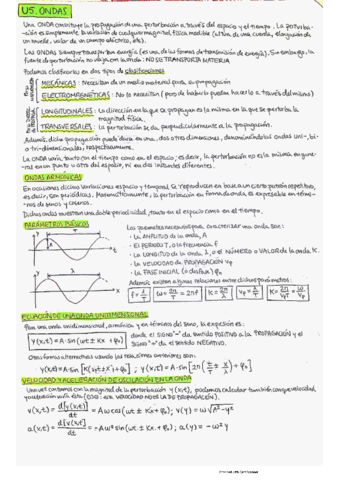 U5. ONDAS
Una ONDA constituye la propagación de una perturbación a través del espacio y el tiempo. La perturba-
ción es simplemente la variación de cualquier magnitud física medible (altura de una cuerda, elongación de
un muelle, valor de un campo eléctrico, etc).
Las ONDAS siempre transportan energía (es una de las formas de transmisión de energía). Sin embargo, la
fuente de perturbación no viaja con la onda: NO SE TRANSPORTA MATERIA
Podemos clasificarlas en dos tipos de clasificaciones
MECÁNICAS: Necesitan de un medio material para su propagación
ELECTROMAGNÉTICAS: No lo necesitan (pero de haberlo pueden hacerlo a través del mismo)
LONGITUDINALES: La dirección en la que se propagan es la misma en la que se perturba la
magnitud física.
TRANSVERSALES: La perturbación se da perpendicularmente a la propagación.
Además, dicha propagación puede darse en una, dos o tres dimensiones, denominándolas ondas uni-, bi-
o tri-dimensionales, respectivamente.
La onda varía tanto con el tiempo como en el espacio; es decir, la perturbación no es la misma en gene-
ral en un punto u otro del espacio, ni en dos instantes diferentes.
ONDAS ARMÓNICAS
En ocasiones dichas variaciones espacio y temporal se reproducen en base a un cierto patrón repetitivo,
es decir, son periódicas. Matemáticamente, la perturbación en forma de onda es expresable en térmi-
nos de senos y cosenos.
Dichas ondas muestran una doble periodicidad, tanto en el espacio como en el tiempo.
PARÁMETROS BÁSICOS
Los parámetros necesarios para caracterizar una onda son:
- La AMPLITUD de la onda, A
- El PERIODO T, o la frecuencia f
- La LONGITUD de la onda, λ, o el NÚMERO o VALOR de la onda K.
- La VELOCIDAD de PROPAGACIÓN Vp
- La FASE INICIAL (o desfase) φ₀
Además existen algunas relaciones entre dichos parámetros:
f = 1/T ω = 2π/T = 2πf K = 2π/λ Vp = λ/T K = 2π/VpT = ω/Vp
ECUACIÓN DE UNA ONDA UNIDIMENSIONAL
Para una onda unidimensional, armónica y en términos del seno, la expresión es:
y(x,t) = A·sin(ωt ± Kx + φ₀)
donde el SIGNO "-" da sentido POSITIVO a la PROPAGACIÓN y el
SIGNO "+" da el sentido NEGATIVO.
Otras formas alternativas usando las relaciones anteriores son:
· y(x,t) = A·sin[K(Vpt ± x) + φ₀] ; y(x,t) = A·sin[2π(t/T ± x/λ) + φ₀]
VELOCIDAD Y ACELERACIÓN DE OSCILACIÓN EN LA ONDA
Una vez contamos con la magnitud de la perturbación y(x,t), podemos calcular también con que velocidad,
y aceleración varía ésta
v(x,t) = d[y(x,t)]/dt = Aω cos(ωt ± Kx + φ₀) ; v(y) = ω√A²-y²
a(x,t) = d[v(x,t)]/dt = -Aω² sin(ωt ± Kx + φ₀) ; a(y) = -ω²y